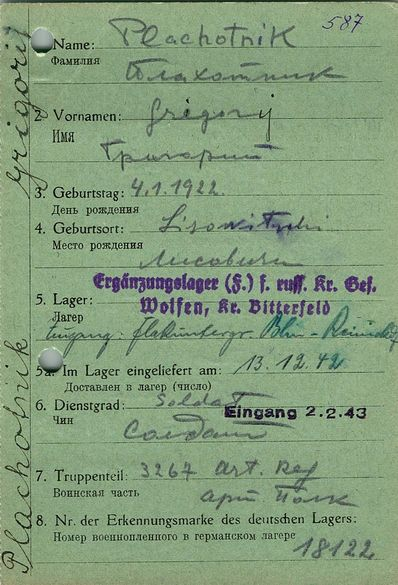 587
1. Name: Plachotnik
Фамилия
Плахотник
2. Vornamen: Grigorij
Имя
Григорий
3. Geburtstag: 4.1.1922.
День рождения
4. Geburtsort: Lisowitschi
Место рождения
Лисовичи
Ergänzungslager (F.) f. russ. Kr. Gef.
Wolfen, Kr. Bitterfeld
5. Lager:
Лагерь
Zugang: Flakuntergr. Bln.-
5a. Im Lager eingeliefert am: 13.12.42
Доставлен в лагерь (число)
6. Dienstgrad: Soldat
Eingang 2.2.43
Чин
Солдат
7. Truppenteil: 3267 Art. Reg
Воинская часть
арт. Полк
8. Nr. der Erkennungsmarke des deutschen Lagers:
Номер военнопленного в германском лагере
18122
Plachotnik Grigorij